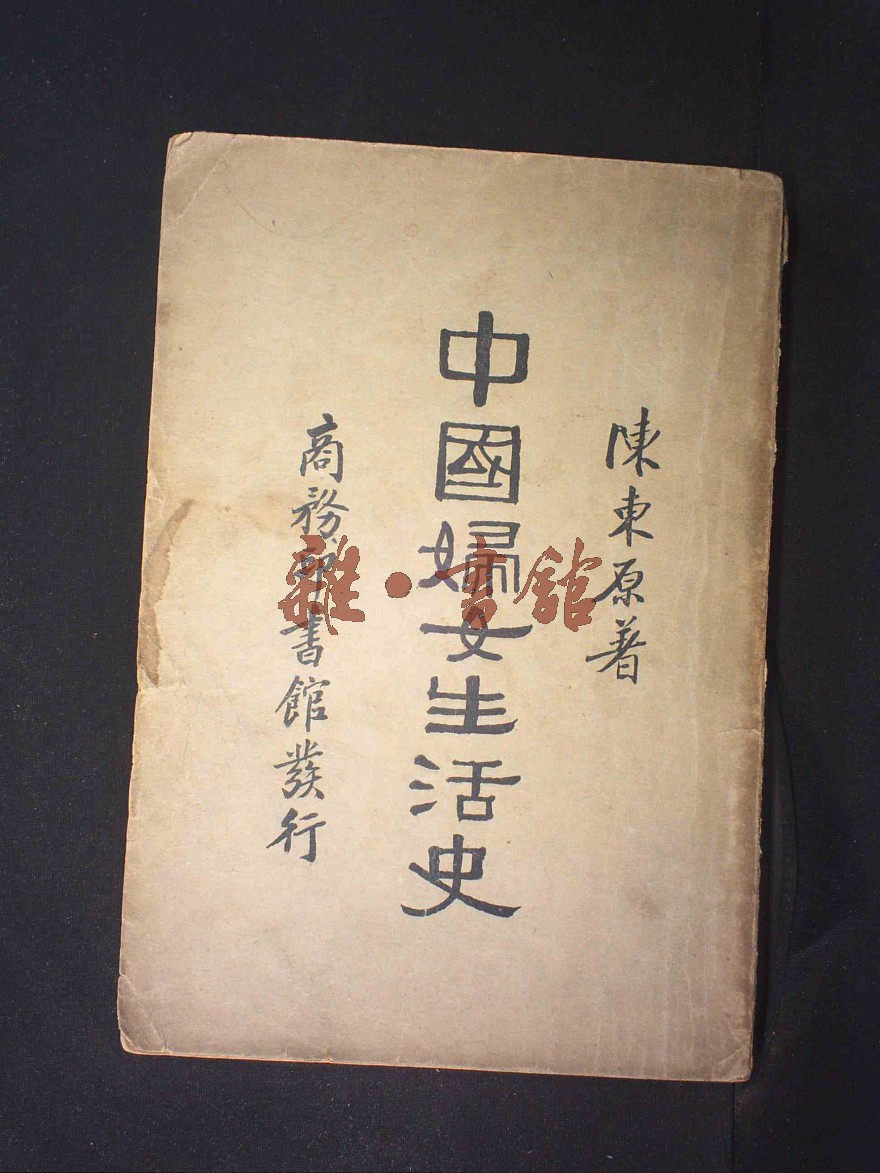 陳東原著
中國婦女生活史
商務印書館發行
雜·書館